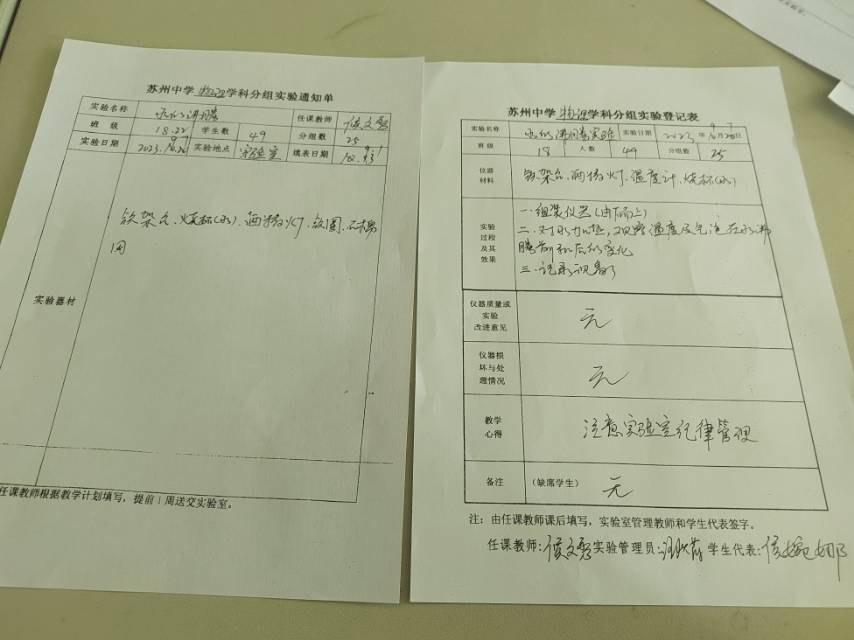 苏州中学物理学科分组实验通知单
实验名称 水的沸腾 任课教师
班 级 18.22 学生数 49 分组数 25
实验日期 2023. 实验地点 实验室 填表日期
实验器材
铁架台、烧杯(水)、酒精灯、铁圈、石棉
网
任课教师根据教学计划填写，提前1周送交实验室。
苏州中学物理学科分组实验登记表
实验名称 水的沸腾实验 实验日期 2023年
班 级 18 人 数 49 分组数 25
仪器
材料
铁架台、酒精灯、温度计、烧杯(水)
实验
过程
及其
效果
一、组装仪器(由下而上)
二、对水加热，观察温度及气泡在水沸
腾前和后的变化
三、记录
仪器质量或
实验
改进意见
无
仪器损
坏与处
理情况
无
教学
心得
注意实验室纪律管理
备注 (缺席学生) 无
注：由任课教师课后填写，实验室管理教师和学生代表签字。
任课教师: 实验管理员: 学生代表: